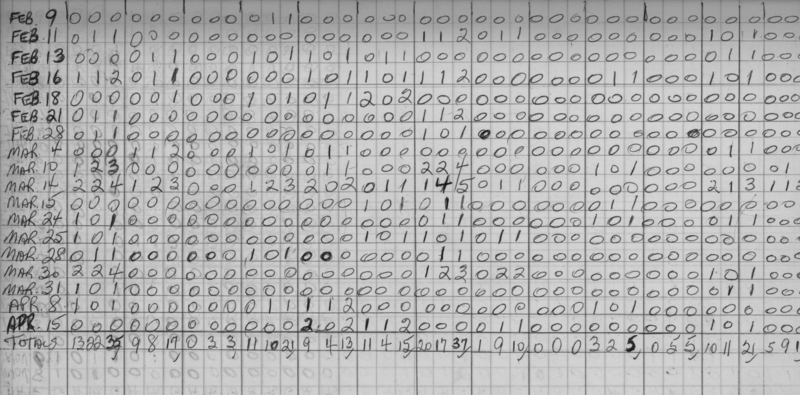 FEB. 9 0 0 0 0 0 0 0 0 0 0 1 1 0 0 0 0 0 0 0 0 0 0 0 0 0 0 0 0 0 0 0 0 0 0 0 0 0 0 0
FEB. 11 0 1 1 0 0 0 0 0 0 0 0 0 0 0 0 0 0 0 1 1 2 0 1 1 0 0 0 0 0 0 0 0 0 1 0 1 0 0 0
FEB. 13 0 0 0 0 1 1 0 0 0 1 0 1 1 0 1 0 1 1 0 0 0 0 0 0 0 0 0 0 0 0 0 0 0 0 1 1 0 0 0
FEB 16 1 1 2 0 1 1 0 0 0 0 0 0 1 0 1 1 0 1 1 1 2 0 0 0 0 0 0 0 1 1 0 0 0 1 0 1 0 0 0
FEB. 18 0 0 0 0 0 1 0 0 0 1 0 1 0 1 1 2 0 2 0 0 0 0 0 0 0 0 0 0 0 0 0 0 0 0 0 0 0 0 0
FEB. 21 0 1 1 0 0 0 0 0 0 0 0 0 0 0 0 0 0 0 1 1 2 0 0 0 0 0 0 0 0 0 0 0 0 0 0 0 0 0 0
FEB. 28 0 1 1 0 0 0 0 0 0 0 0 0 0 0 0 0 0 0 1 0 1 0 0 0 0 0 0 0 0 0 0 0 0 0 1 1 0 0 0
MAR 4 0 0 0 1 1 2 0 0 0 1 0 1 0 1 1 0 0 0 0 0 0 0 0 0 0 0 0 0 0 0 0 0 0 0 0 0 0 0 0
MAR. 10 1 2 3 0 0 0 0 0 0 0 0 0 0 1 1 0 0 0 2 2 4 0 0 0 0 0 0 1 0 1 0 0 0 0 0 0 0 1
MAR 14 2 2 4 1 2 3 0 0 0 1 2 3 2 0 2 0 1 1 1 4 5 0 1 1 0 0 0 0 0 0 0 0 0 2 1 3 1 1
MAR. 15 0 0 0 0 0 0 0 0 0 0 0 0 0 0 0 1 0 1 0 1 1 0 0 0 0 0 0 0 1 1 0 0 0 0 0 0 0 0 0
MAR. 24 1 0 1 0 0 0 0 0 0 0 0 0 0 0 0 0 0 0 0 1 1 0 0 0 0 0 0 1 0 1 0 0 0 0 1 1 0 0 0
MAR. 25 1 0 1 0 0 0 0 0 0 0 0 0 0 0 0 1 0 1 1 0 1 0 1 1 0 0 0 0 0 0 0 0 0 0 0 0 0 0 0
MAR. 28 0 1 1 0 0 0 0 0 0 1 0 1 0 0 0 0 0 0 0 1 1 0 0 0 0 0 0 0 0 0 0 0 0 0 0 0 0 0 0
MAR. 30 2 2 4 0 0 0 0 0 0 0 0 0 0 0 0 0 0 0 1 2 3 0 2 2 0 0 0 0 0 0 0 0 0 1 0 1 0 0 0
MAR. 31 1 0 1 0 0 0 0 0 0 0 0 0 0 0 0 0 0 0 0 0 0 0 0 0 0 0 0 0 0 0 0 0 0 0 1 1 0 0 0
APR. 8 1 0 1 0 0 0 0 0 0 0 1 1 1 1 2 0 0 0 0 0 0 0 0 0 0 0 0 1 0 1 0 0 0 0 0 0 0 0 0
APR. 15 0 0 0 0 0 0 0 0 0 0 0 0 2 0 2 1 1 2 0 0 0 0 1 1 0 0 0 0 0 0 0 0 0 1 0 1 0 0 0
TOTALS 13 22 35 9 8 17 0 3 3 11 10 21 9 4 13 11 4 15 20 17 37 1 9 10 0 0 0 3 2 5 0 5 5 10 11 21 5 9 1